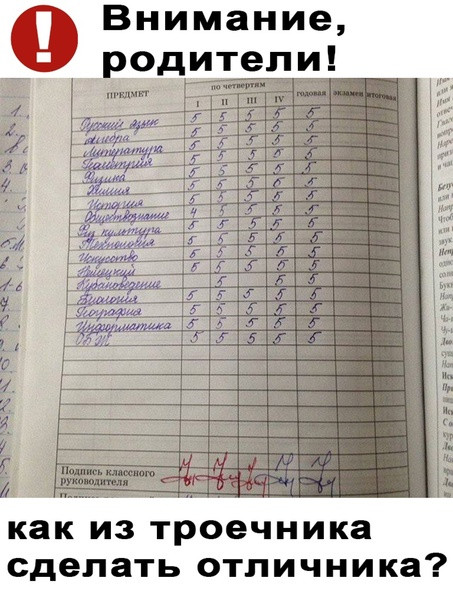 Внимание,
родители!
ПРЕДМЕТ по четвертям годовая экзамен итоговая
I II III IV
Русский язык 5 5 5 5 5
Алгебра 5 5 5 5 5
Литература 5 5 5 5 5
Геометрия 5 5 5 5 5
Физика 5 5 5 5 5
Химия 5 5 5 5 5
История 5 5 5 5 5
Обществознание 4 5 5 5 5
Физ культура 5 5 5 5 5
Технология 5 5 5 5 5
Искусство 5 5 5 5 5
Немецкий 5 5 5 5 5
Кубановедение 5 5 5
Биология 5 5 5 5 5
География 5 5 5 5 5
Информатика 5 5 5 5 5
ОБЖ 5 5 5 5 5
Подпись классного
руководителя
как из троечника
сделать отличника?